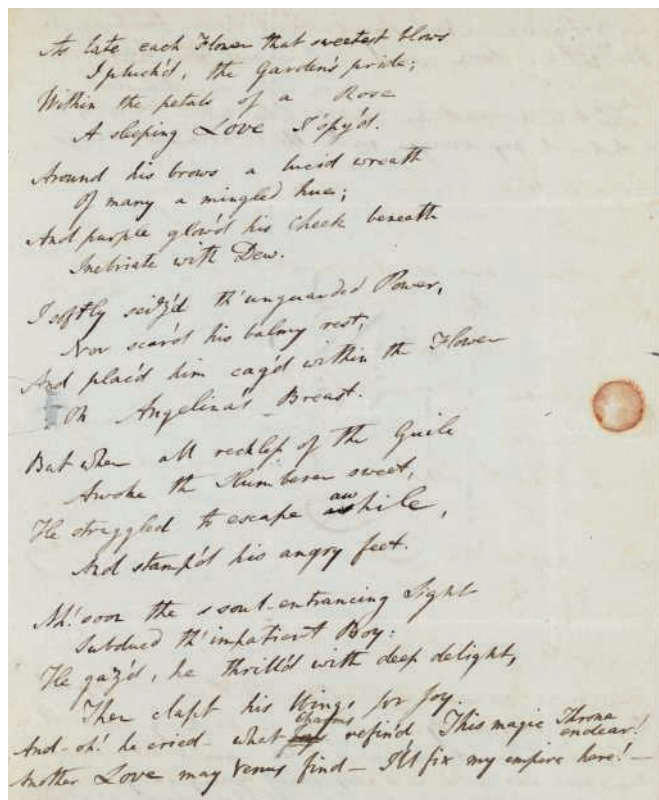 As late each Flower that sweetest blows
I pluck'd, the Garden's pride;
Within the petals of a Rose
A sleeping Love I 'spy'd.
Around his brows a lucid wreath
Of many a mingled hue;
And purple glow'd his Cheek beneath
Inebriate with Dew.
I softly seiz'd th' unguarded Power,
Nor scar'd his balmy rest;
And plac'd him cag'd within the Flower
On Angelina's Breast.
But when all reckless of the Guile
Awoke the Slumberer sweet,
He struggled to escape awhile,
And stamp'd his angry feet.
Ah! soon the soul-entrancing Sight
Subdued th' impatient Boy:
He gaz'd, he thrill'd with deep delight,
Then clapt his Wings for Joy.
And - oh! he cried - what charms refin'd This magic Throne endear!
Another Love may Venus find - I'll fix my empire here! -